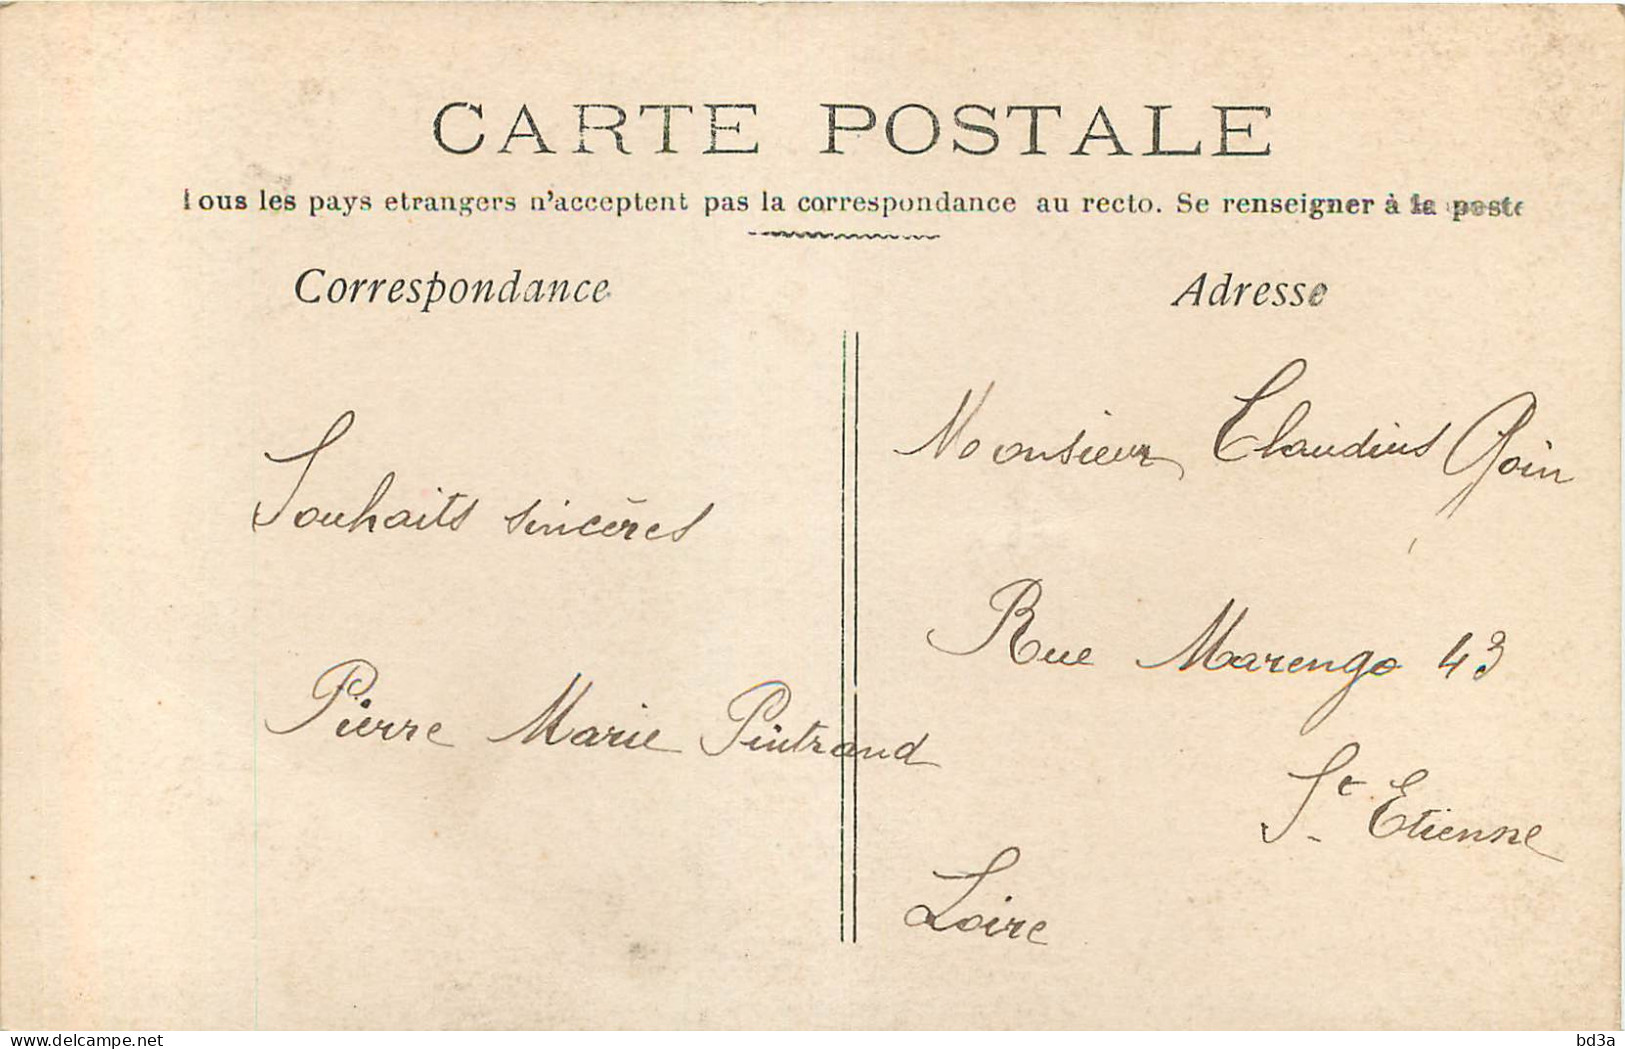 CARTE POSTALE
Tous les pays etrangers n'acceptent pas la correspondance au recto. Se renseigner à la poste
Correspondance
Souhaits sincères
Pierre Marie Pintrand
Adresse
Monsieur Claudius Goin
Rue Marengo 43
St Etienne
Loire
delcampe.net
bd3a